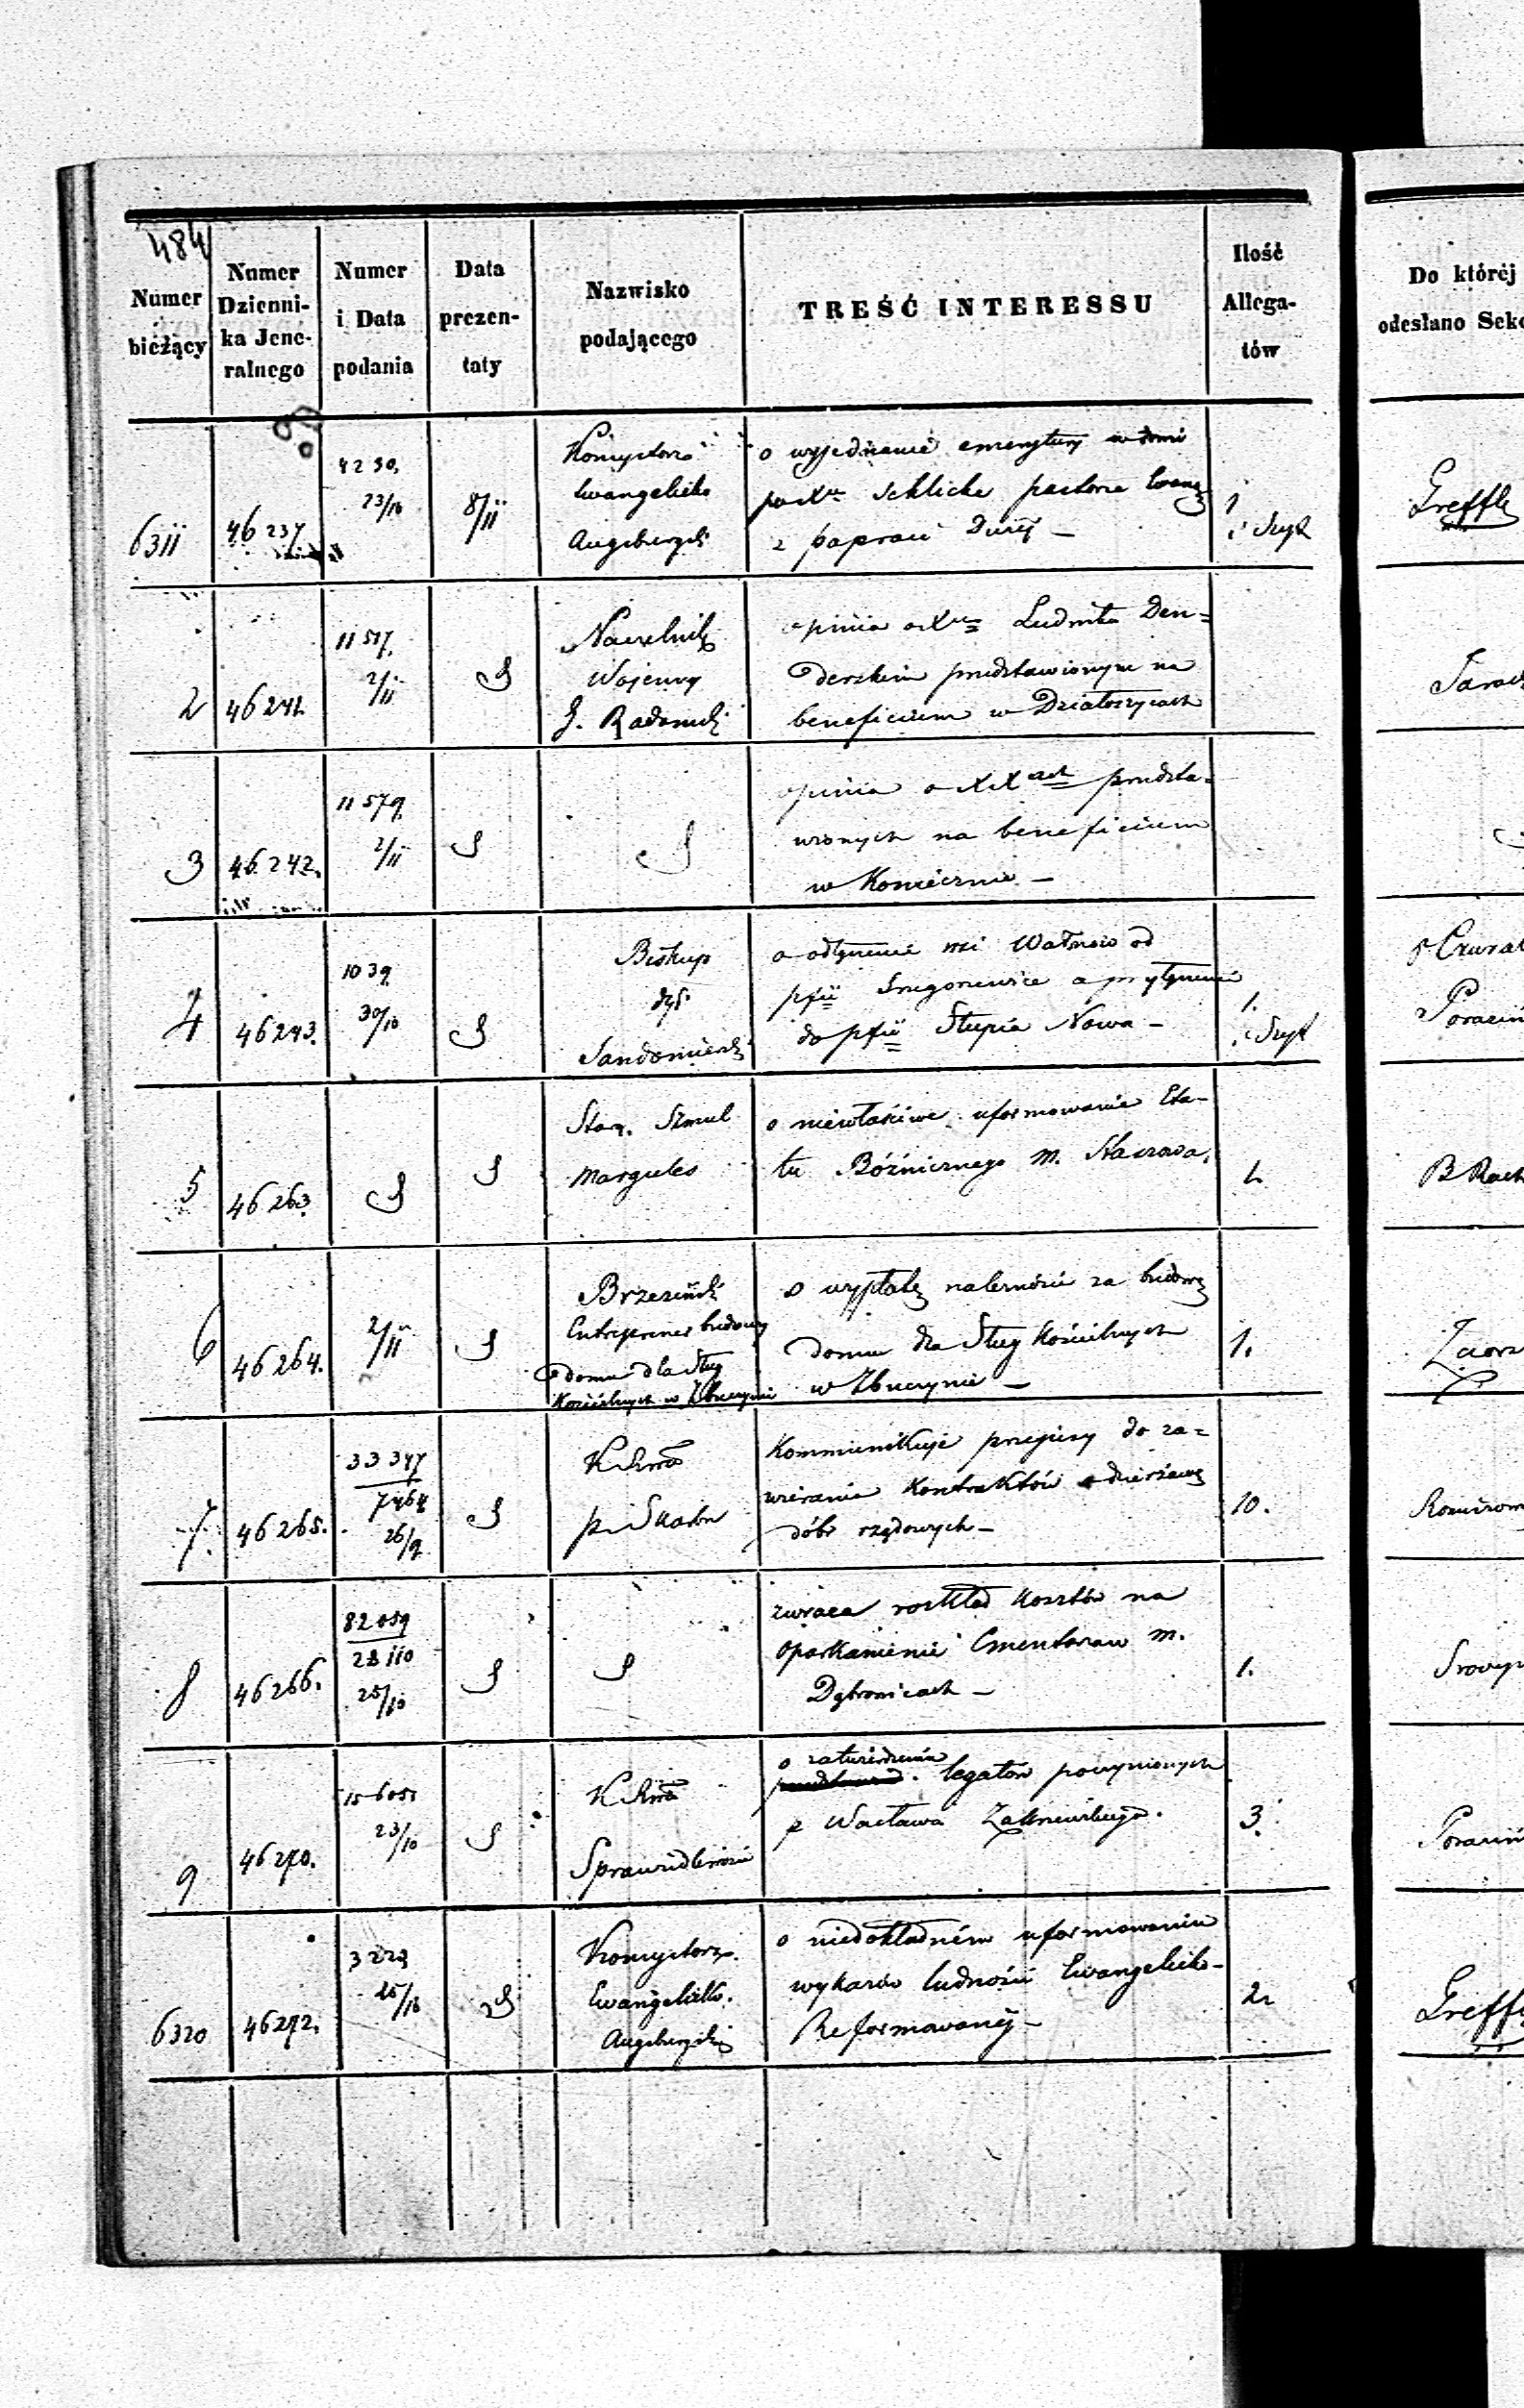 484
Numer bieżący
Numer Dzienni- ka Jene- ralnego
Numer i Data podania
Data prezen- taty
Nazwisko podającego
TREŚĆ INTERESSU
Ilość Allega- tów
Do któréj odesłano Sek
6311
46 237
4230.
23/10
8/11
Konsystorz
Ewangelicko
Augsburgski
o wyjednanie emerytury wdowie
po Xu Schlicke pastorze Ewang
z Paproci Dużéj —
1
i Szyk
Greffle
2
46 241.
11 517.
2/11
S
Naczelnik
Wojenny
G. Radomski
opinia o Xu Ludwiku Den=
derskim przedstawionym na
beneficium w Działoszycach
3
46 242.
11 579.
2/11
S
S
opinia o XX ach przedsta=
wionych na beneficium
w Koniecznie —
4
46 243.
1039
30/10
S
Biskup
dyi
Sandomierski
o odłączenie wsi Wałsnów od
pfii Grzegorzewice a przyłączenie
do pfii Słupia Nowa —
1.
i Szyk
5
46 263.
S
S
Star. Szmul
Margules
o niewłaściwe uformowanie Eta-
tu Bóźnicznego m.
1.
6
46 264.
2/11
S
Brzeziński
Entreprener budowy
domu dla Sług
Kościelnych w Zbuczynie
o wypłatę należności za budowę
domu dla Sług Kościelnych
w Zbuczynie —
1.
7.
46 265.
33 347
7464
26/9
S
K Rrwa
p. Skarbu
Kommunikuje przepisy do za=
wierania Kontraktów o dzierżawę
dóbr rządowych —
10.
8
46 266.
82 059
28 110
25/10
S
S
zwraca rozkład kosztów na
oparkanienie Cmentarza w m.
1.
9
46 270.
15 605
23/10
S
K Rrwa
Sprawiedliwości
o zatwierdzenie
legatów poczynionych
p Wacława Zakrzewskiego.
3.
6320
46 272.
3223
25/10
S
Konsystorz
Ewangelicko.
Augsburgski
o niedokładném uformowaniu
wykazów ludności Ewangelicko-
Reformowanéj —
2
Greffe